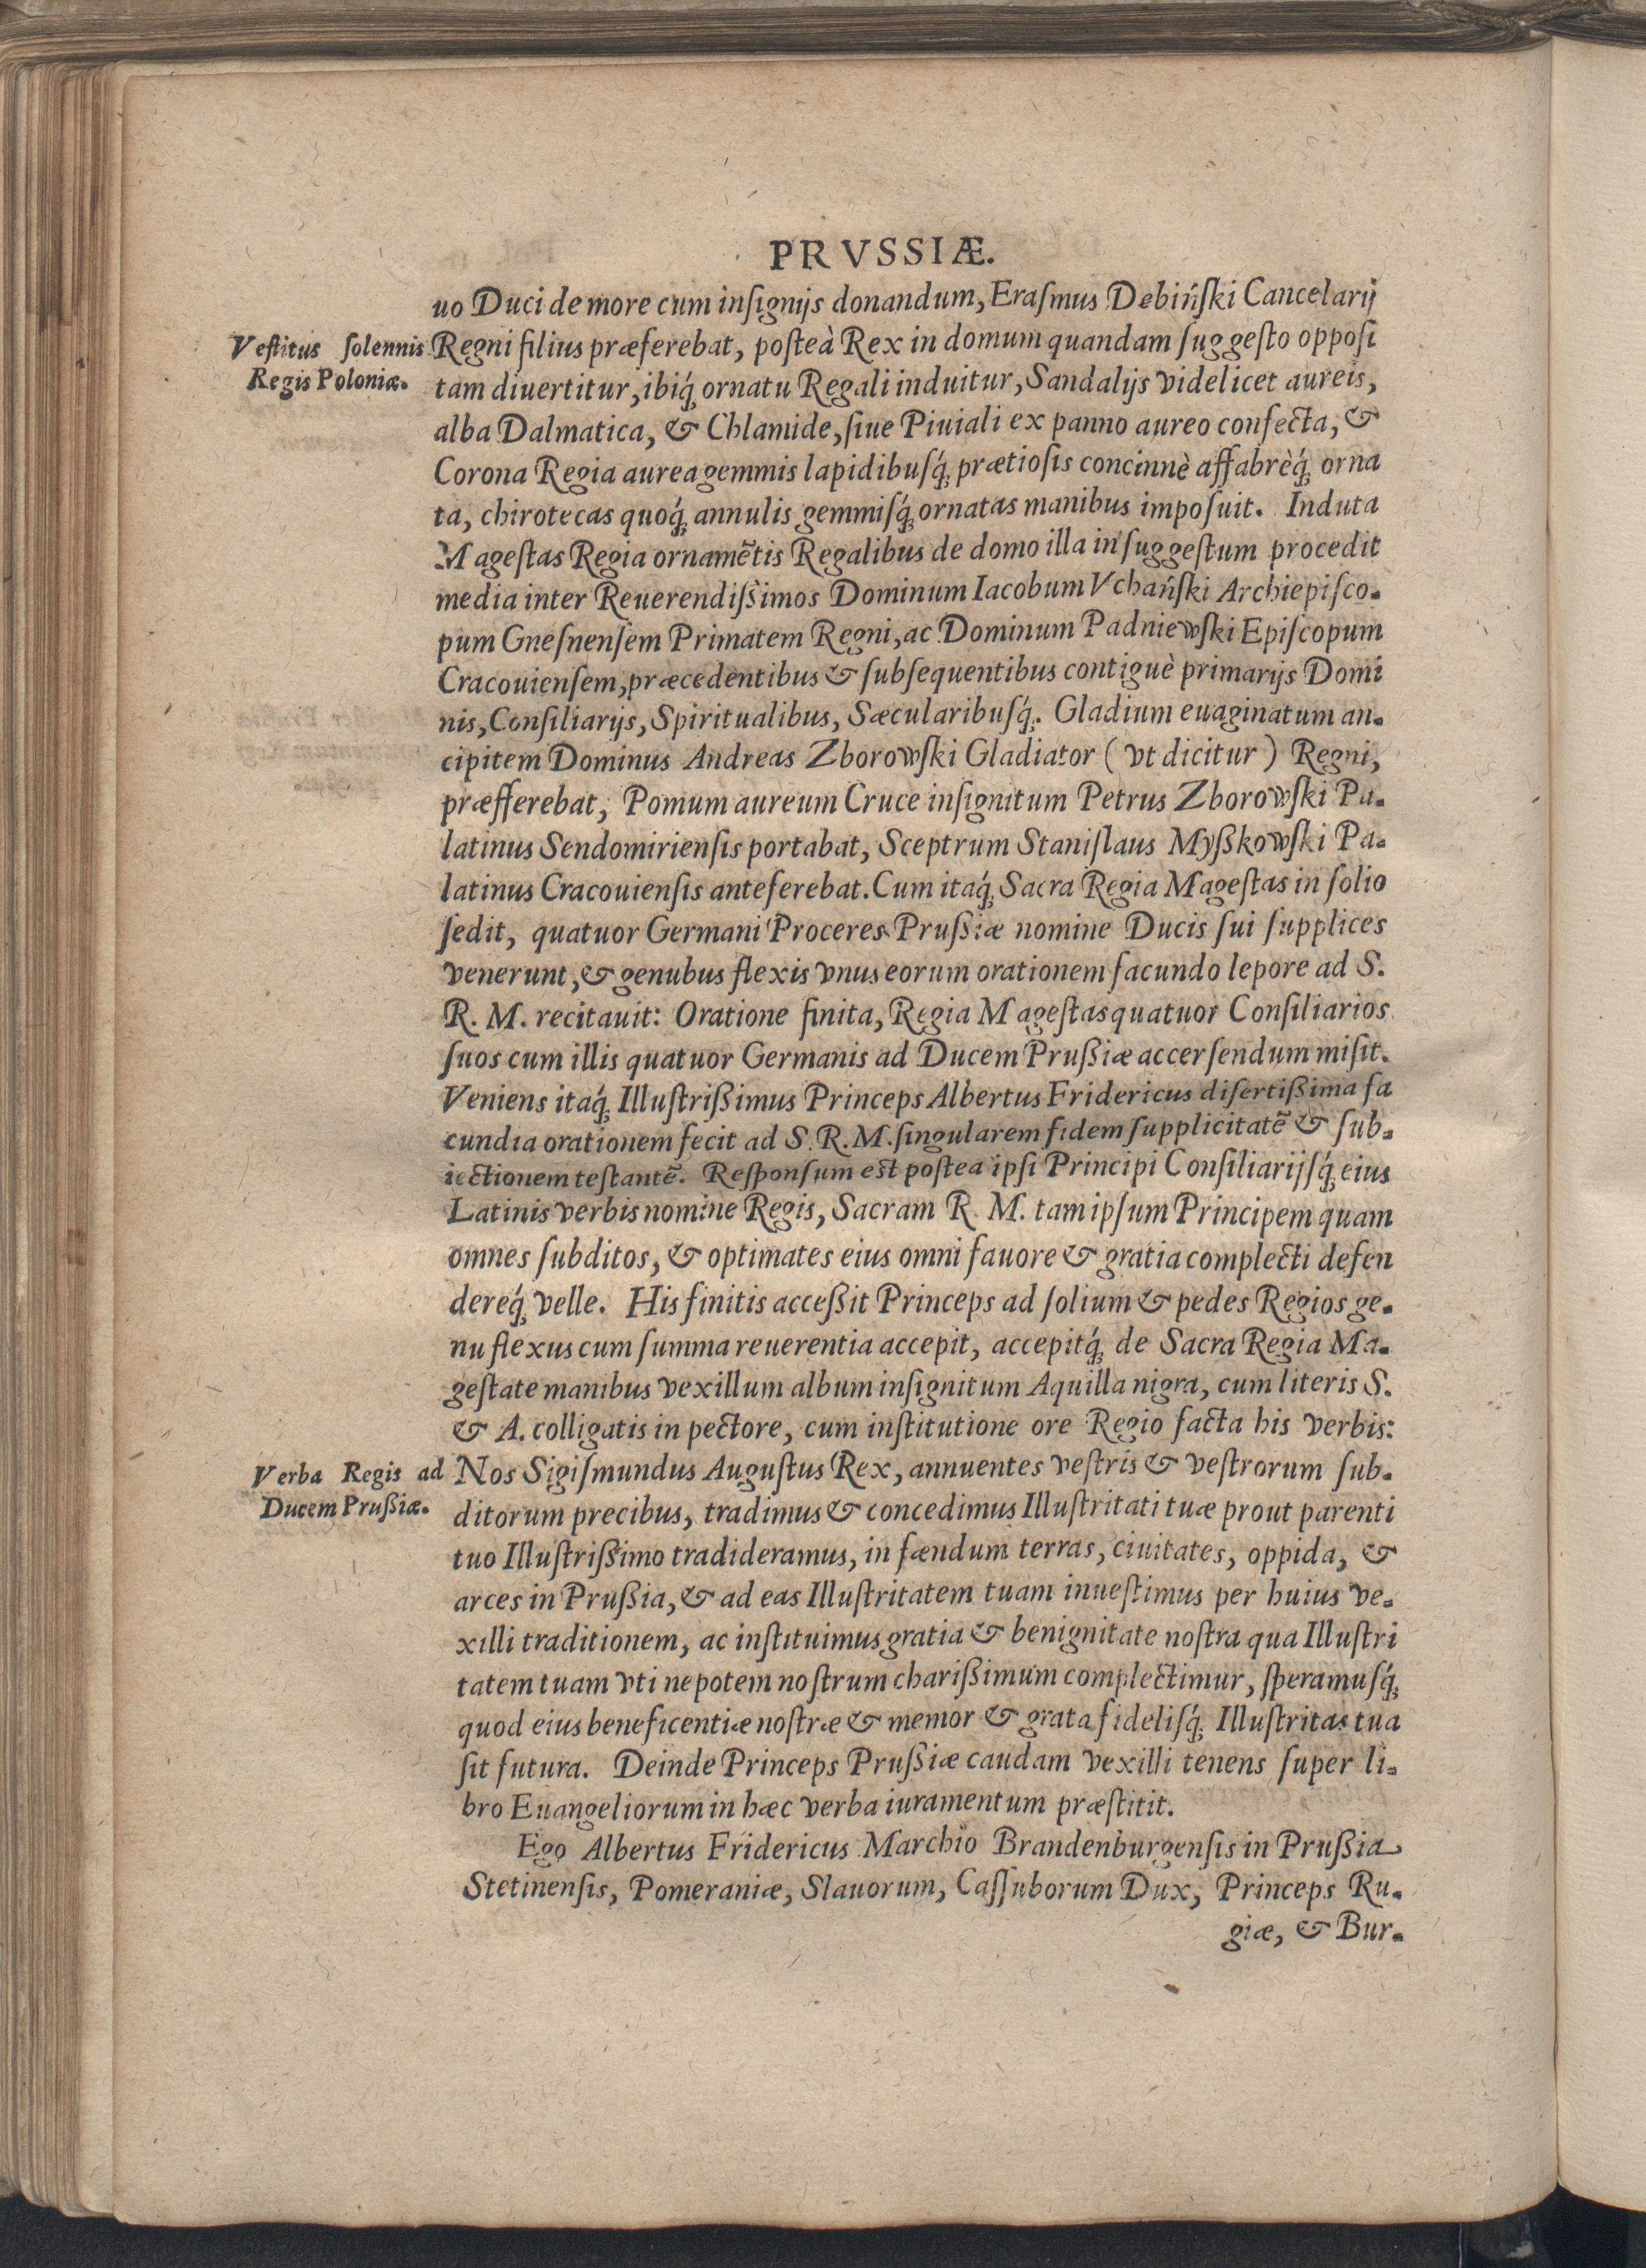 PRVSSIÆ.
uo Duci de more cum inſignijs donandum, Eraſmus Debińſki Cancelarij
Veſtitus ſolennis
Regis Poloniæ.
Regni filius præferebat, poſteà Rex in domum quandam ſuggeſto oppoſi
tam diuertitur, ibiq́; ornatu Regali induitur, Sandalijs videlicet aureis,
alba Dalmatica, & Chlamide, ſiue Piuiali ex panno aureo confecta, &
Corona Regia aurea gemmis lapidibuſq́; prætioſis concinnè affabrèq́; orna
ta, chirotecas quoq́; annulis gemmiſq́; ornatas manibus impoſuit. Induta
Mageſtas Regia ornamẽtis Regalibus de domo illa in ſuggeſtum procedit
media inter Reuerendiſsimos Dominum Iacobum Vchańſki Archiepiſco-
pum Gneſnenſem Primatem Regni, ac Dominum Padniewſki Epiſcopum
Cracouienſem, præcedentibus & ſubſequentibus contiguè primarijs Domi
nis, Conſiliarijs, Spiritualibus, Sæcularibuſq́;. Gladium euaginatum an-
cipitem Dominus Andreas Zborowſki Gladiator ( vt dicitur ) Regni,
præfferebat, Pomum aureum Cruce inſignitum Petrus Zborowſki Pa-
latinus Sendomirienſis portabat, Sceptrum Staniſlaus Myßkowſki Pa-
latinus Cracouienſis anteferebat. Cum itaq́; Sacra Regia Mageſtas in ſolio
ſedit, quatuor Germani Proceres Prußiæ nomine Ducis ſui ſupplices
venerunt, & genubus flexis vnus eorum orationem facundo lepore ad S.
R. M. recitauit: Oratione finita, Regia Mageſtas quatuor Conſiliarios
ſuos cum illis quatuor Germanis ad Ducem Prußiæ accerſendum miſit.
Veniens itaq́; Illuſtrißimus Princeps Albertus Fridericus diſertißima fa
cundia orationem fecit ad S. R. M. ſingularem fidem ſupplicitatẽ & ſub-
iectionem teſtantẽ. Reſponſum eſt poſtea ipſi Principi Conſiliarijſq́; eius
Latinis verbis nomine Regis, Sacram R. M. tam ipſum Principem quam
omnes ſubditos, & optimates eius omni fauore & gratia complecti defen
dereq́; velle. His finitis acceßit Princeps ad ſolium & pedes Regios ge-
nu flexus cum ſumma reuerentia accepit, accepitq́; de Sacra Regia Ma-
geſtate manibus vexillum album inſignitum Aquilla nigra, cum literis S.
& A. colligatis in pectore, cum inſtitutione ore Regio facta his verbis:
Verba Regis ad
Ducem Prußiæ.
Nos Sigiſmundus Auguſtus Rex, annuentes veſtris & veſtrorum ſub-
ditorum precibus, tradimus & concedimus Illuſtritati tuæ prout parenti
tuo Illuſtrißimo tradideramus, in fændum terras, ciuitates, oppida, &
arces in Prußia, & ad eas Illuſtritatem tuam inueſtimus per huius ve-
xilli traditionem, ac inſtituimus gratia & benignitate noſtra qua Illuſtri
tatem tuam vti nepotem noſtrum charißimum complectimur, ſperamuſq́;
quod eius beneficentiæ noſtræ & memor & grata fideliſq́; Illuſtritas tua
ſit futura. Deinde Princeps Prußiæ caudam vexilli tenens ſuper li-
bro Euangeliorum in hæc verba iuramentum præſtitit.
Ego Albertus Fridericus Marchio Brandenburgenſis in Prußia
Stetinenſis, Pomeraniæ, Slauorum, Caſſuborum Dux, Princeps Ru-
giæ, & Bur-